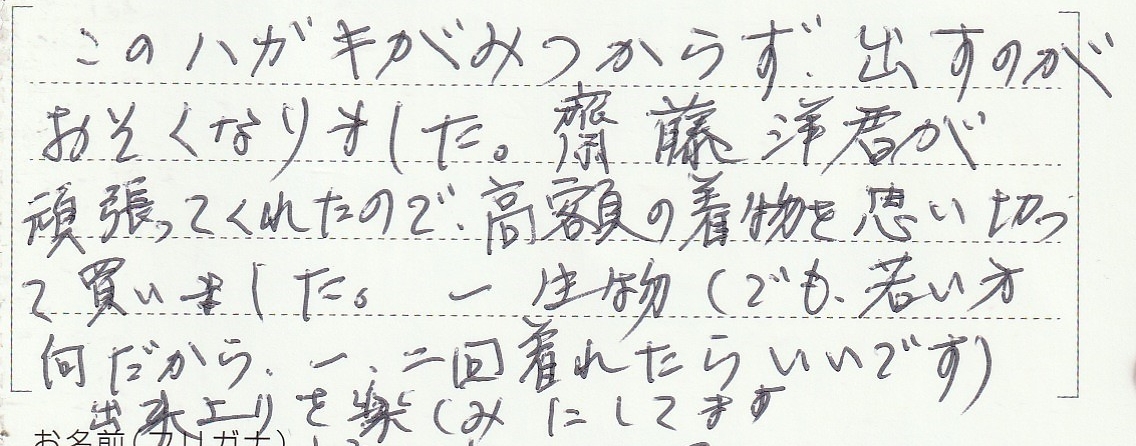 このハガキがみつからず、出すのが
おそくなりました。齋藤洋君が
頑張ってくれたので、高額の着物を思い切っ
て買いました。一生物（でも、若い方
何だから、一、二回着れたらいいです）
出来上りを楽しみにしてます
お名前（フリガナ）